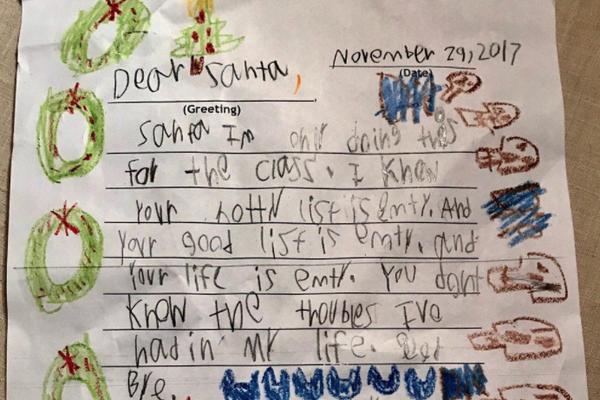 November 29, 2017
(Date)
Dear Santa,
(Greeting)
Santa Im only doing this
for the class. I Know
Your notty list is emty. And
Your good list is emty. and
Your life is emty. You dont
Know the troubles Ive
had in my life. Good
Bye.